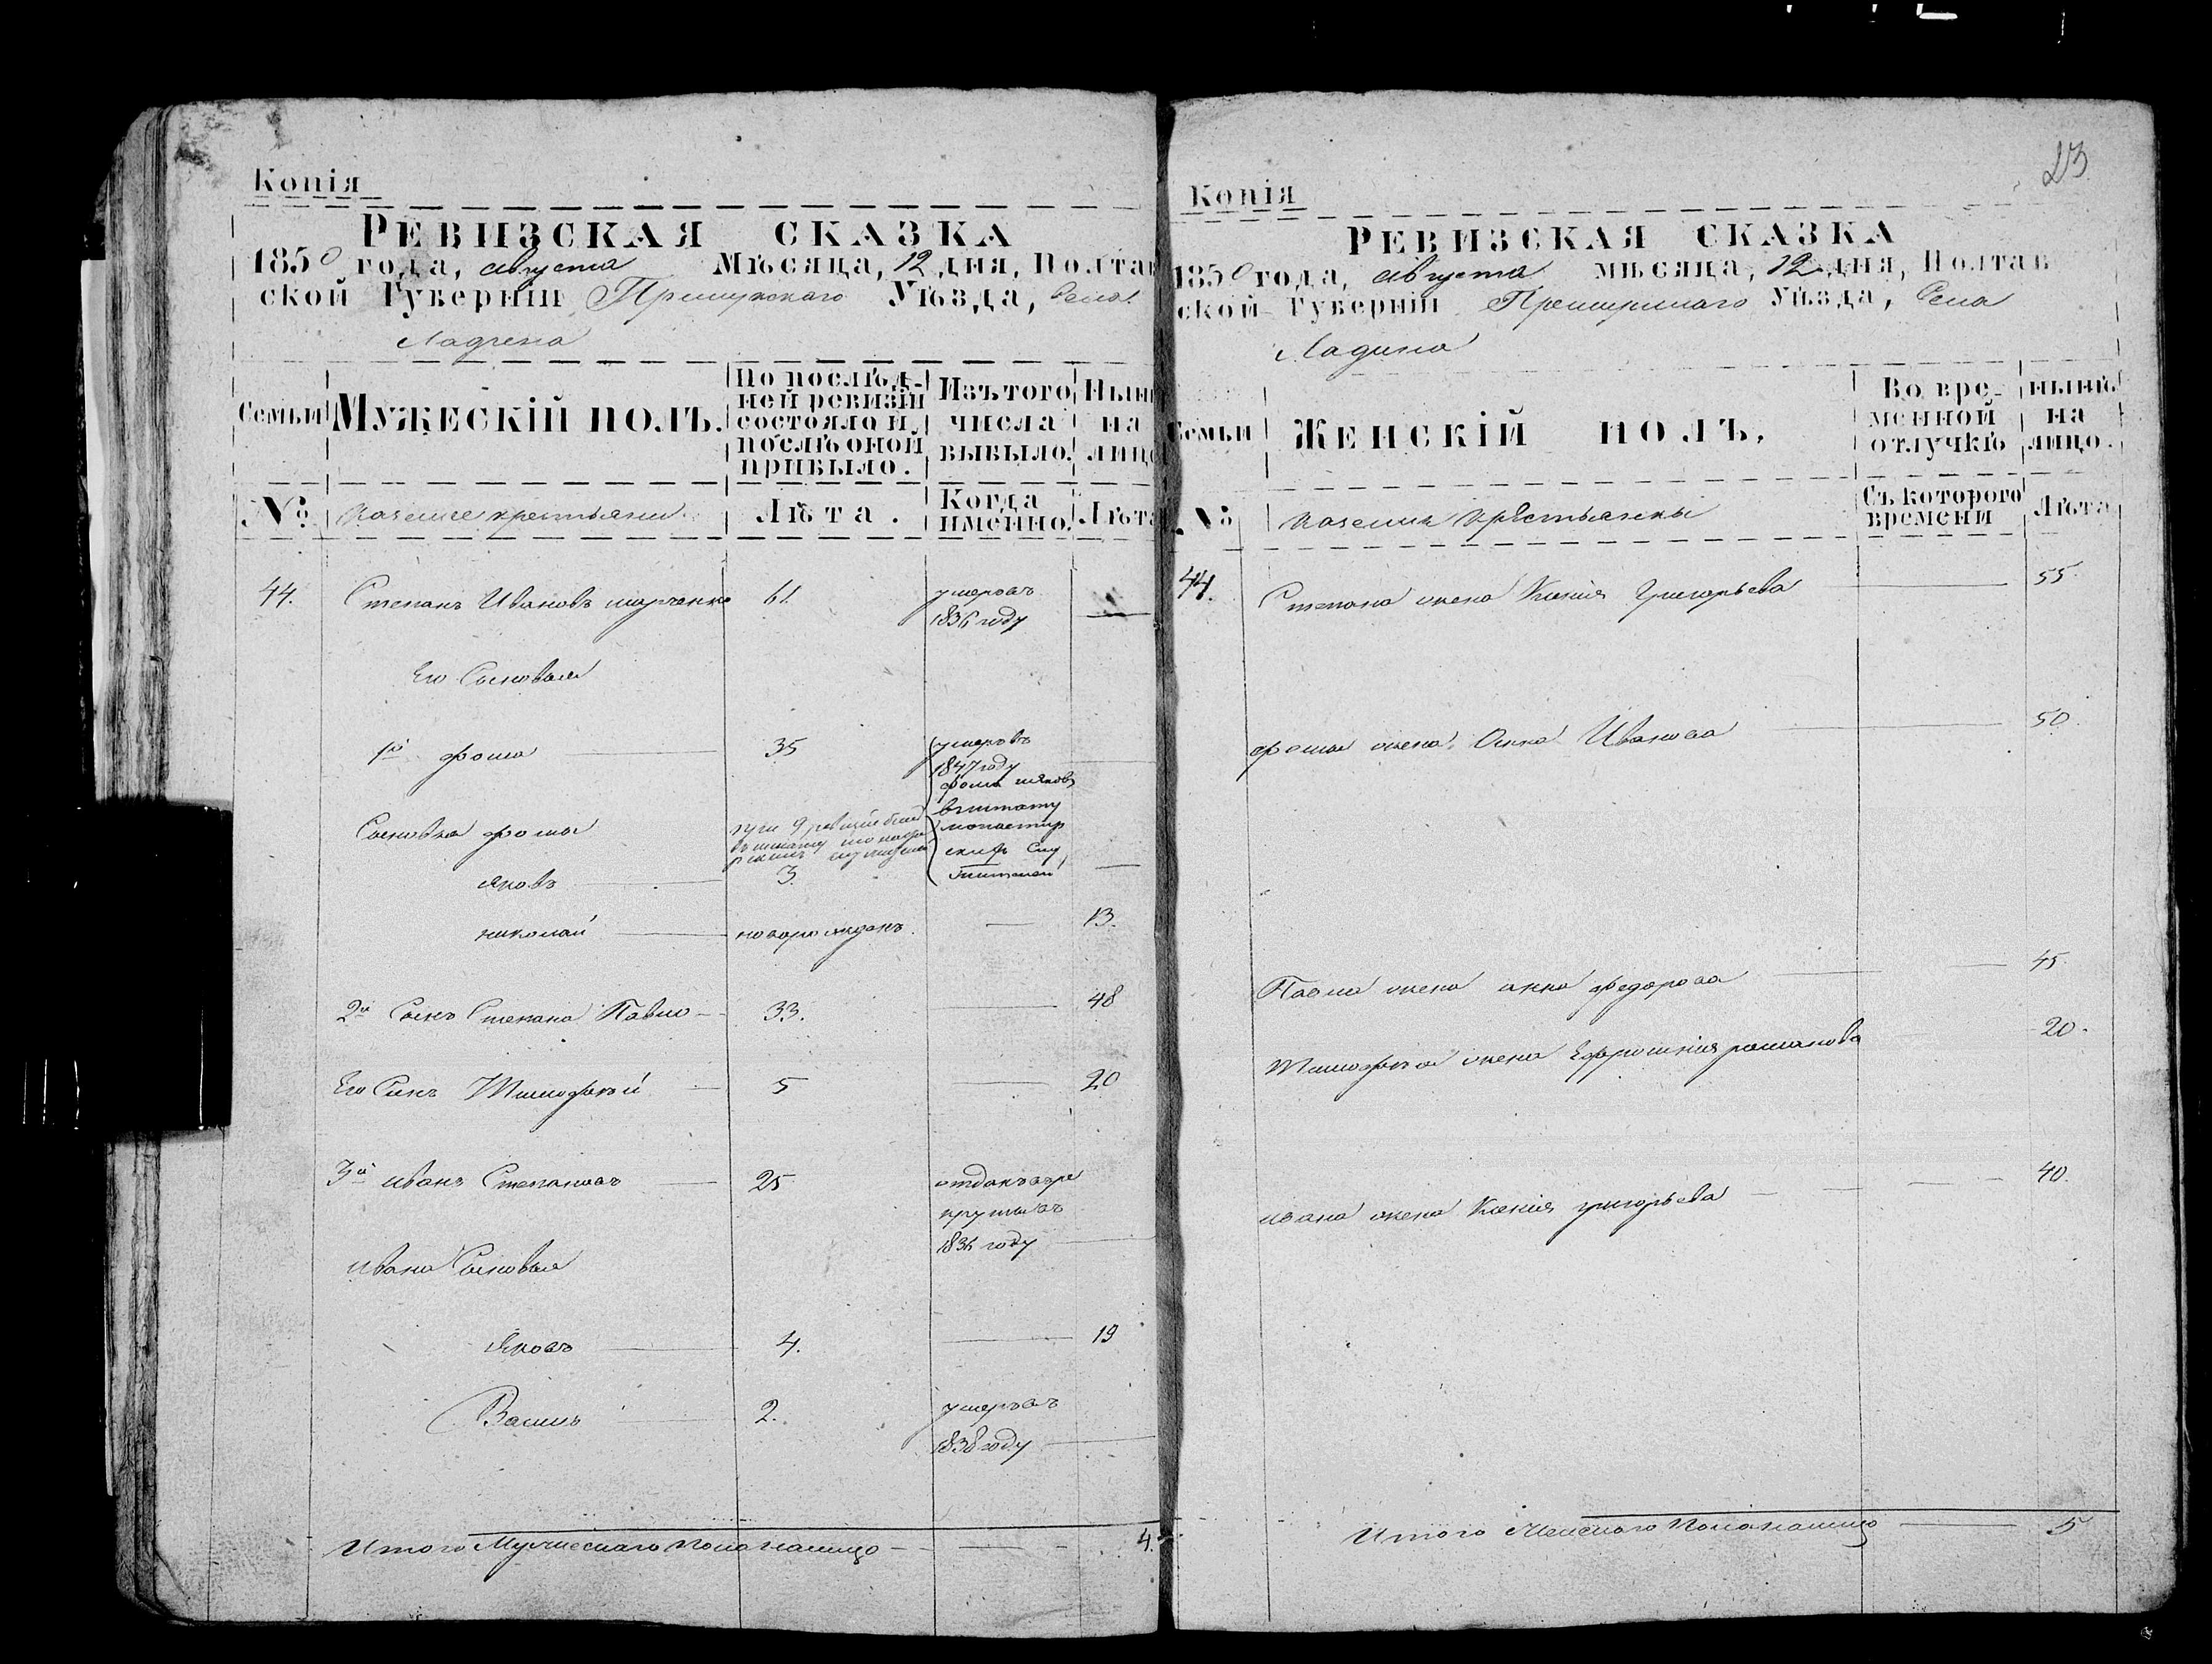 Копія
РЕВИЗСКАЯ СКАЗКА
1850 года, августа Мѣсяца, 12 дня, Полтав
ской Губерніи Прилукскаго Уѣзда, Села
Ладина
Семьи
МУЖЕСКІЙ ПОЛЪ.
По послѣд-
ней ревизіи
состояло и
послѣ оной
прибыло.
Изъ того
числа
выбыло.
Нын
на
лицо
№
казенные крестьяне
Лѣта.
Когда
именно.
Лѣта
44. Степанъ Ивановъ 61. умеръ въ
1836 году
Его Сыновья
1й фома 35 умеръ въ
1847 году
Сыновья фомы
Яковъ 3.
николай новорожденъ. 13.
2й Сынъ Степана Павло 33. 48
Его Сынъ Тимофѣй 5 20
3й иванъ Степановъ 25 отданъ въ ре
круты въ
1836 году
ивана Сыновья
Яковъ 4. 19
Василь 2. умеръ въ
1838 году
Итого Мужескаго пола налицо 4.
23
Копія
РЕВИЗСКАЯ СКАЗКА
1850 года, августа мѣсяца, 12 дня, Полтав
ской Губерніи Прилукскаго Уѣзда, Села
Ладина
Семьи
ЖЕНСКІЙ ПОЛЪ,
Во вре-
менной
отлучкѣ
нынѣ
на
лицо.
№
казенныя крестьянки
Съ котораго
времени
Лѣта
44. Степана жена Ксенія Григорьева 55.
фомы жена Анна Иванова 50.
Павла жена анна федорова 45
Тимофѣя жена Ефросинія романова 20.
ивана жена Ксенія григорьева 40.
Итого Женскаго пола налицо 5